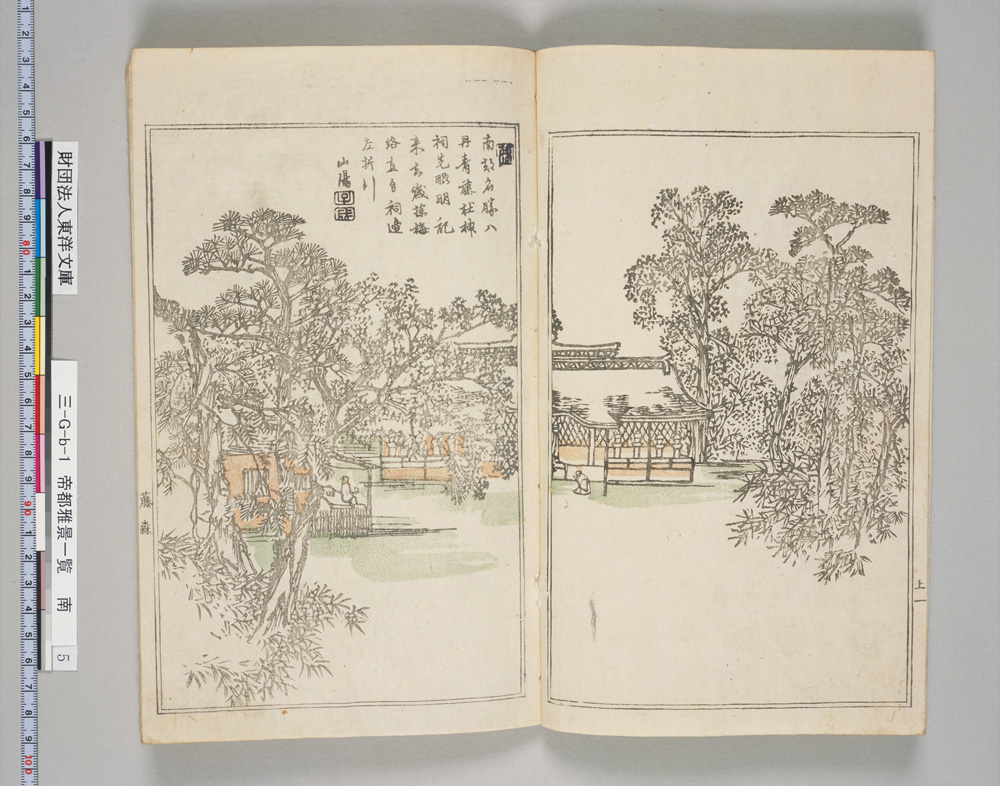 南郊名勝入
丹青藤社神
祠先眼明記
来去歳探梅
路直自祠邊
左折行
山陽
藤森
上 一
財団法人東洋文庫
三-G-b-1 帝都雅景一覧 南
5